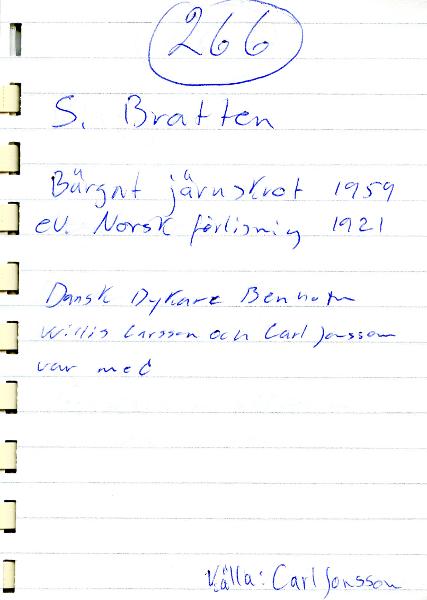 266
S. Bratten
Bärgat järnskrot 1959
ev. Norsk förlisning 1921
Dansk Dykare Benholm
Willis Larsson och Carl Jonsson
var med
Källa: Carl Jonsson